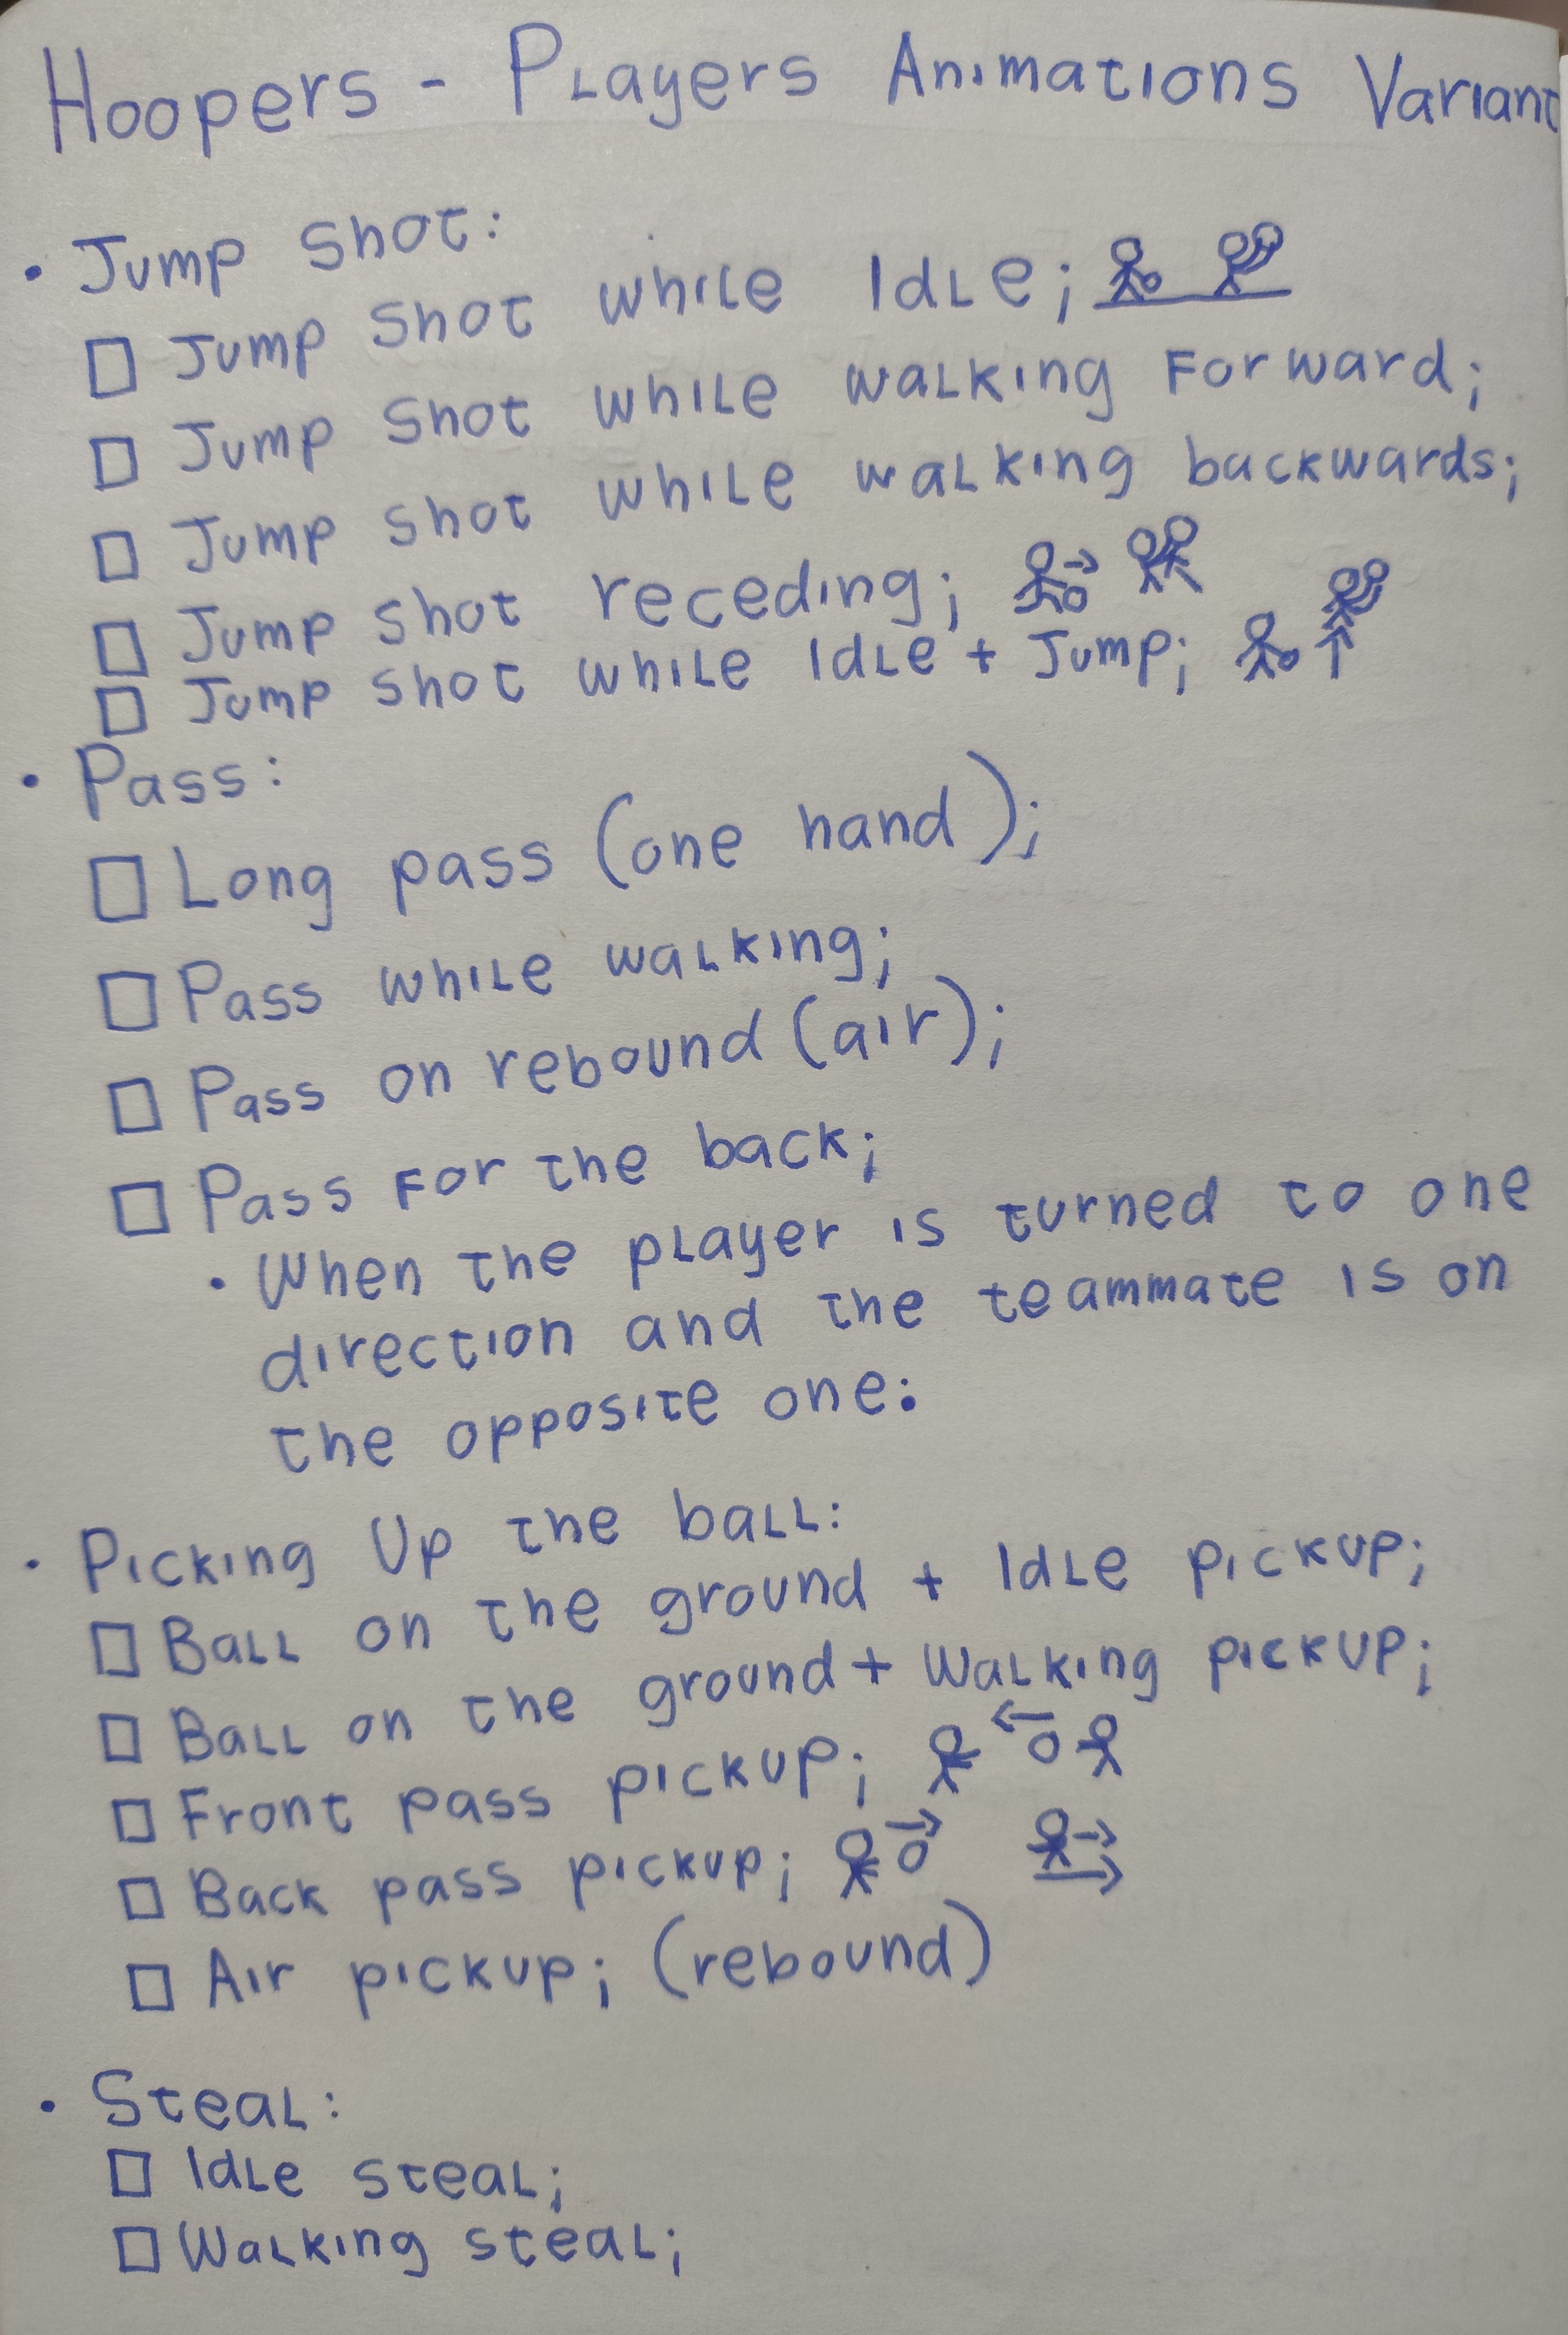 Hoopers - Players Animations Variant
• Jump Shot:
☐ Jump Shot while Idle;
☐ Jump Shot while walking Forward;
☐ Jump Shot while walking backwards;
☐ Jump shot receding;
☐ Jump shot while Idle + Jump;
• Pass:
☐ Long pass (one hand);
☐ Pass while walking;
☐ Pass on rebound (air);
☐ Pass For the back;
• When the player is turned to one
direction and the teammate is on
the opposite one.
• Picking Up the ball:
☐ Ball on the ground + Idle pickup;
☐ Ball on the ground + Walking pickup;
☐ Front pass pickup;
☐ Back pass pickup;
☐ Air pickup; (rebound)
• Steal:
☐ Idle steal;
☐ Walking steal;